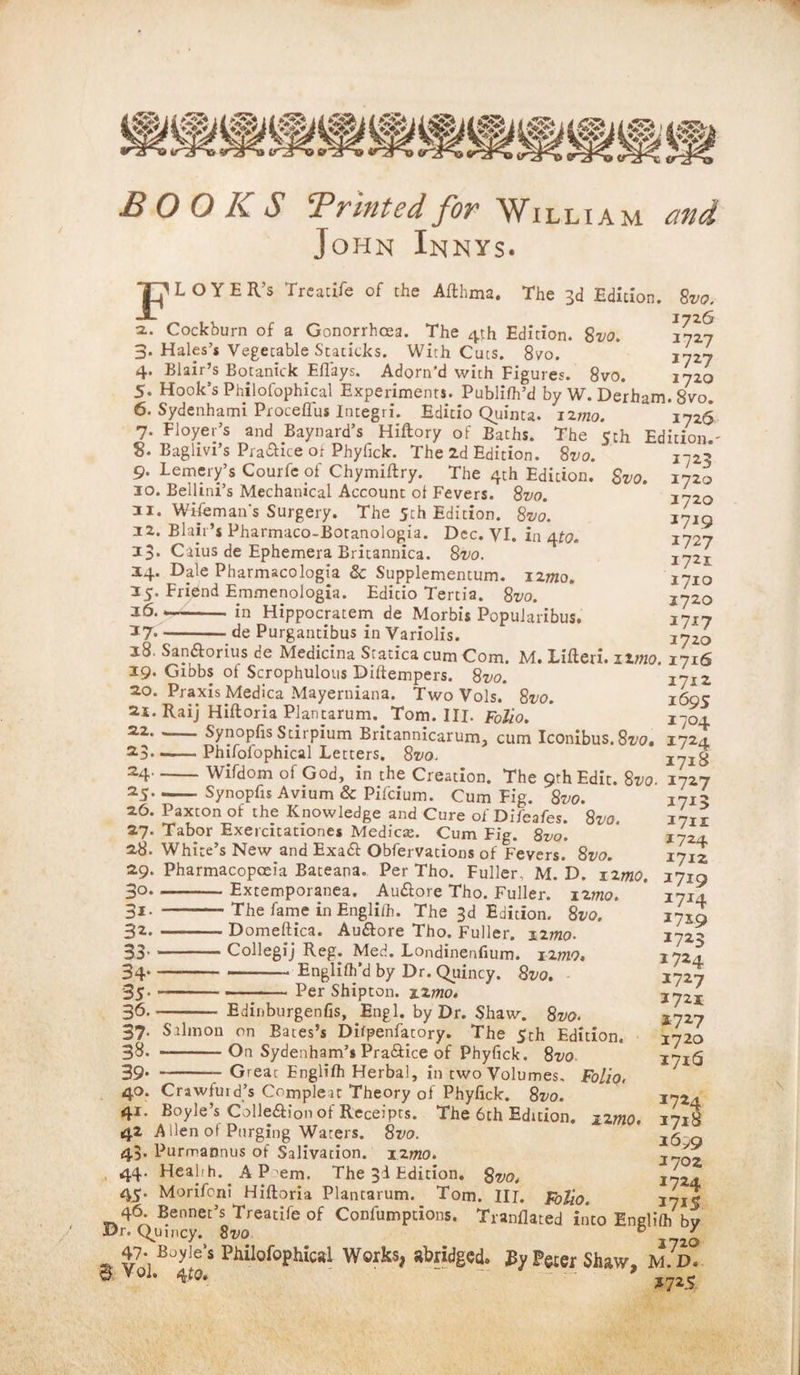 BOOKS Printed for WILLIAM and
JOHN INNYS.
FLOYER's Treatiſe of the Aſthma. The 3d Edition. 8vo.
1726
2. Cockburn of a Gonorrhœa. The 4th Edition. 8vo. 1727
3. Hales's Vegetable Staticks. With Cuts. 8vo. 1727
4. Blair's Botanick Eſſays. Adorn'd with Figures. 8vo. 1720
5. Hook's Philoſophical Experiments. Publiſh'd by W. Derham. 8vo.
6. Sydenhami Proceſſus Integri. Editio Quinta. 12mo. 1726
7. Floyer's and Baynard's Hiſtory of Baths. The 5th Edition.
8. Baglivi's Practice of Phyſick. The 2d Edition. 8vo. 1723
9. Lemery's Courſe of Chymiſtry. The 4th Edition. 8vo. 1720
10. Bellini's Mechanical Account of Fevers. 8vo. 1720
11. Wiſeman's Surgery. The 5th Edition. 8vo. 1719
12. Blair's Pharmaco-Botanologia. Dec. VI. in 4to. 1727
13. Caius de Ephemera Britannica. 8vo. 1721
14. Dale Pharmacologia & Supplementum. 12mo. 1710
15. Friend Emmenologia. Editio Tertia. 8vo. 1720
16. —— in Hippocratem de Morbis Popularibus. 1717
17. —— de Purgantibus in Variolis. 1720
18. Sanctorius de Medicina Statica cum Com. M. Liſteri. 12mo. 1716
19. Gibbs of Scrophulous Diſtempers. 8vo. 1712
20. Praxis Medica Mayerniana. Two Vols. 8vo. 1695
21. Raij Hiſtoria Plantarum. Tom. III. Folio. 1704
22. —— Synopſis Stirpium Britannicarum, cum Iconibus. 8vo. 1724
23. —— Philoſophical Letters. 8vo. 1718
24. —— Wiſdom of God, in the Creation. The 9th Edit. 8vo. 1727
25. —— Synopſis Avium & Piſcium. Cum Fig. 8vo. 1713
26. Paxton of the Knowledge and Cure of Diſeaſes. 8vo. 1711
27. Tabor Exercitationes Medicæ. Cum Fig. 8vo. 1724
28. White's New and Exact Obſervations of Fevers. 8vo. 1712
29. Pharmacopœia Bateana. Per Tho. Fuller, M. D. 12mo. 1719
30. —— Extemporanea. Auctore Tho. Fuller. 12mo. 1714
31. —— The ſame in Engliſh. The 3d Edition. 8vo. 1719
32. —— Domeſtica. Auctore Tho. Fuller. 12mo. 1723
33. —— Collegij Reg. Med. Londinenſium. 12mo. 1724
34. —— —— Engliſh'd by Dr. Quincy. 8vo. 1727
35. —— —— Per Shipton. 12mo. 1721
36. —— Edinburgenſis, Engl. by Dr. Shaw. 8vo. 1727
37. Salmon on Bates's Diſpenſatory. The 5th Edition. 1720
38. —— On Sydenham's Practice of Phyſick. 8vo. 1716
39. —— Great Engliſh Herbal, in two Volumes. Folio.
40. Crawfurd's Compleat Theory of Phyſick. 8vo. 1724
41. Boyle's Collection of Receipts. The 6th Edition. 12mo. 1718
42 Allen of Purging Waters. 8vo. 1699
43. Purmannus of Salivation. 12mo. 1702
44. Health. A Poem. The 3d Edition. 8vo. 1724
45. Moriſoni Hiſtoria Plantarum. Tom. III. Folio. 1715
46. Bennet's Treatiſe of Conſumptions. Tranſlated into Engliſh by
Dr. Quincy. 8vo. 1720
47. Boyle's Philoſophical Works, abridged. By Peter Shaw, M. D.
3 Vol. 4to. 1725